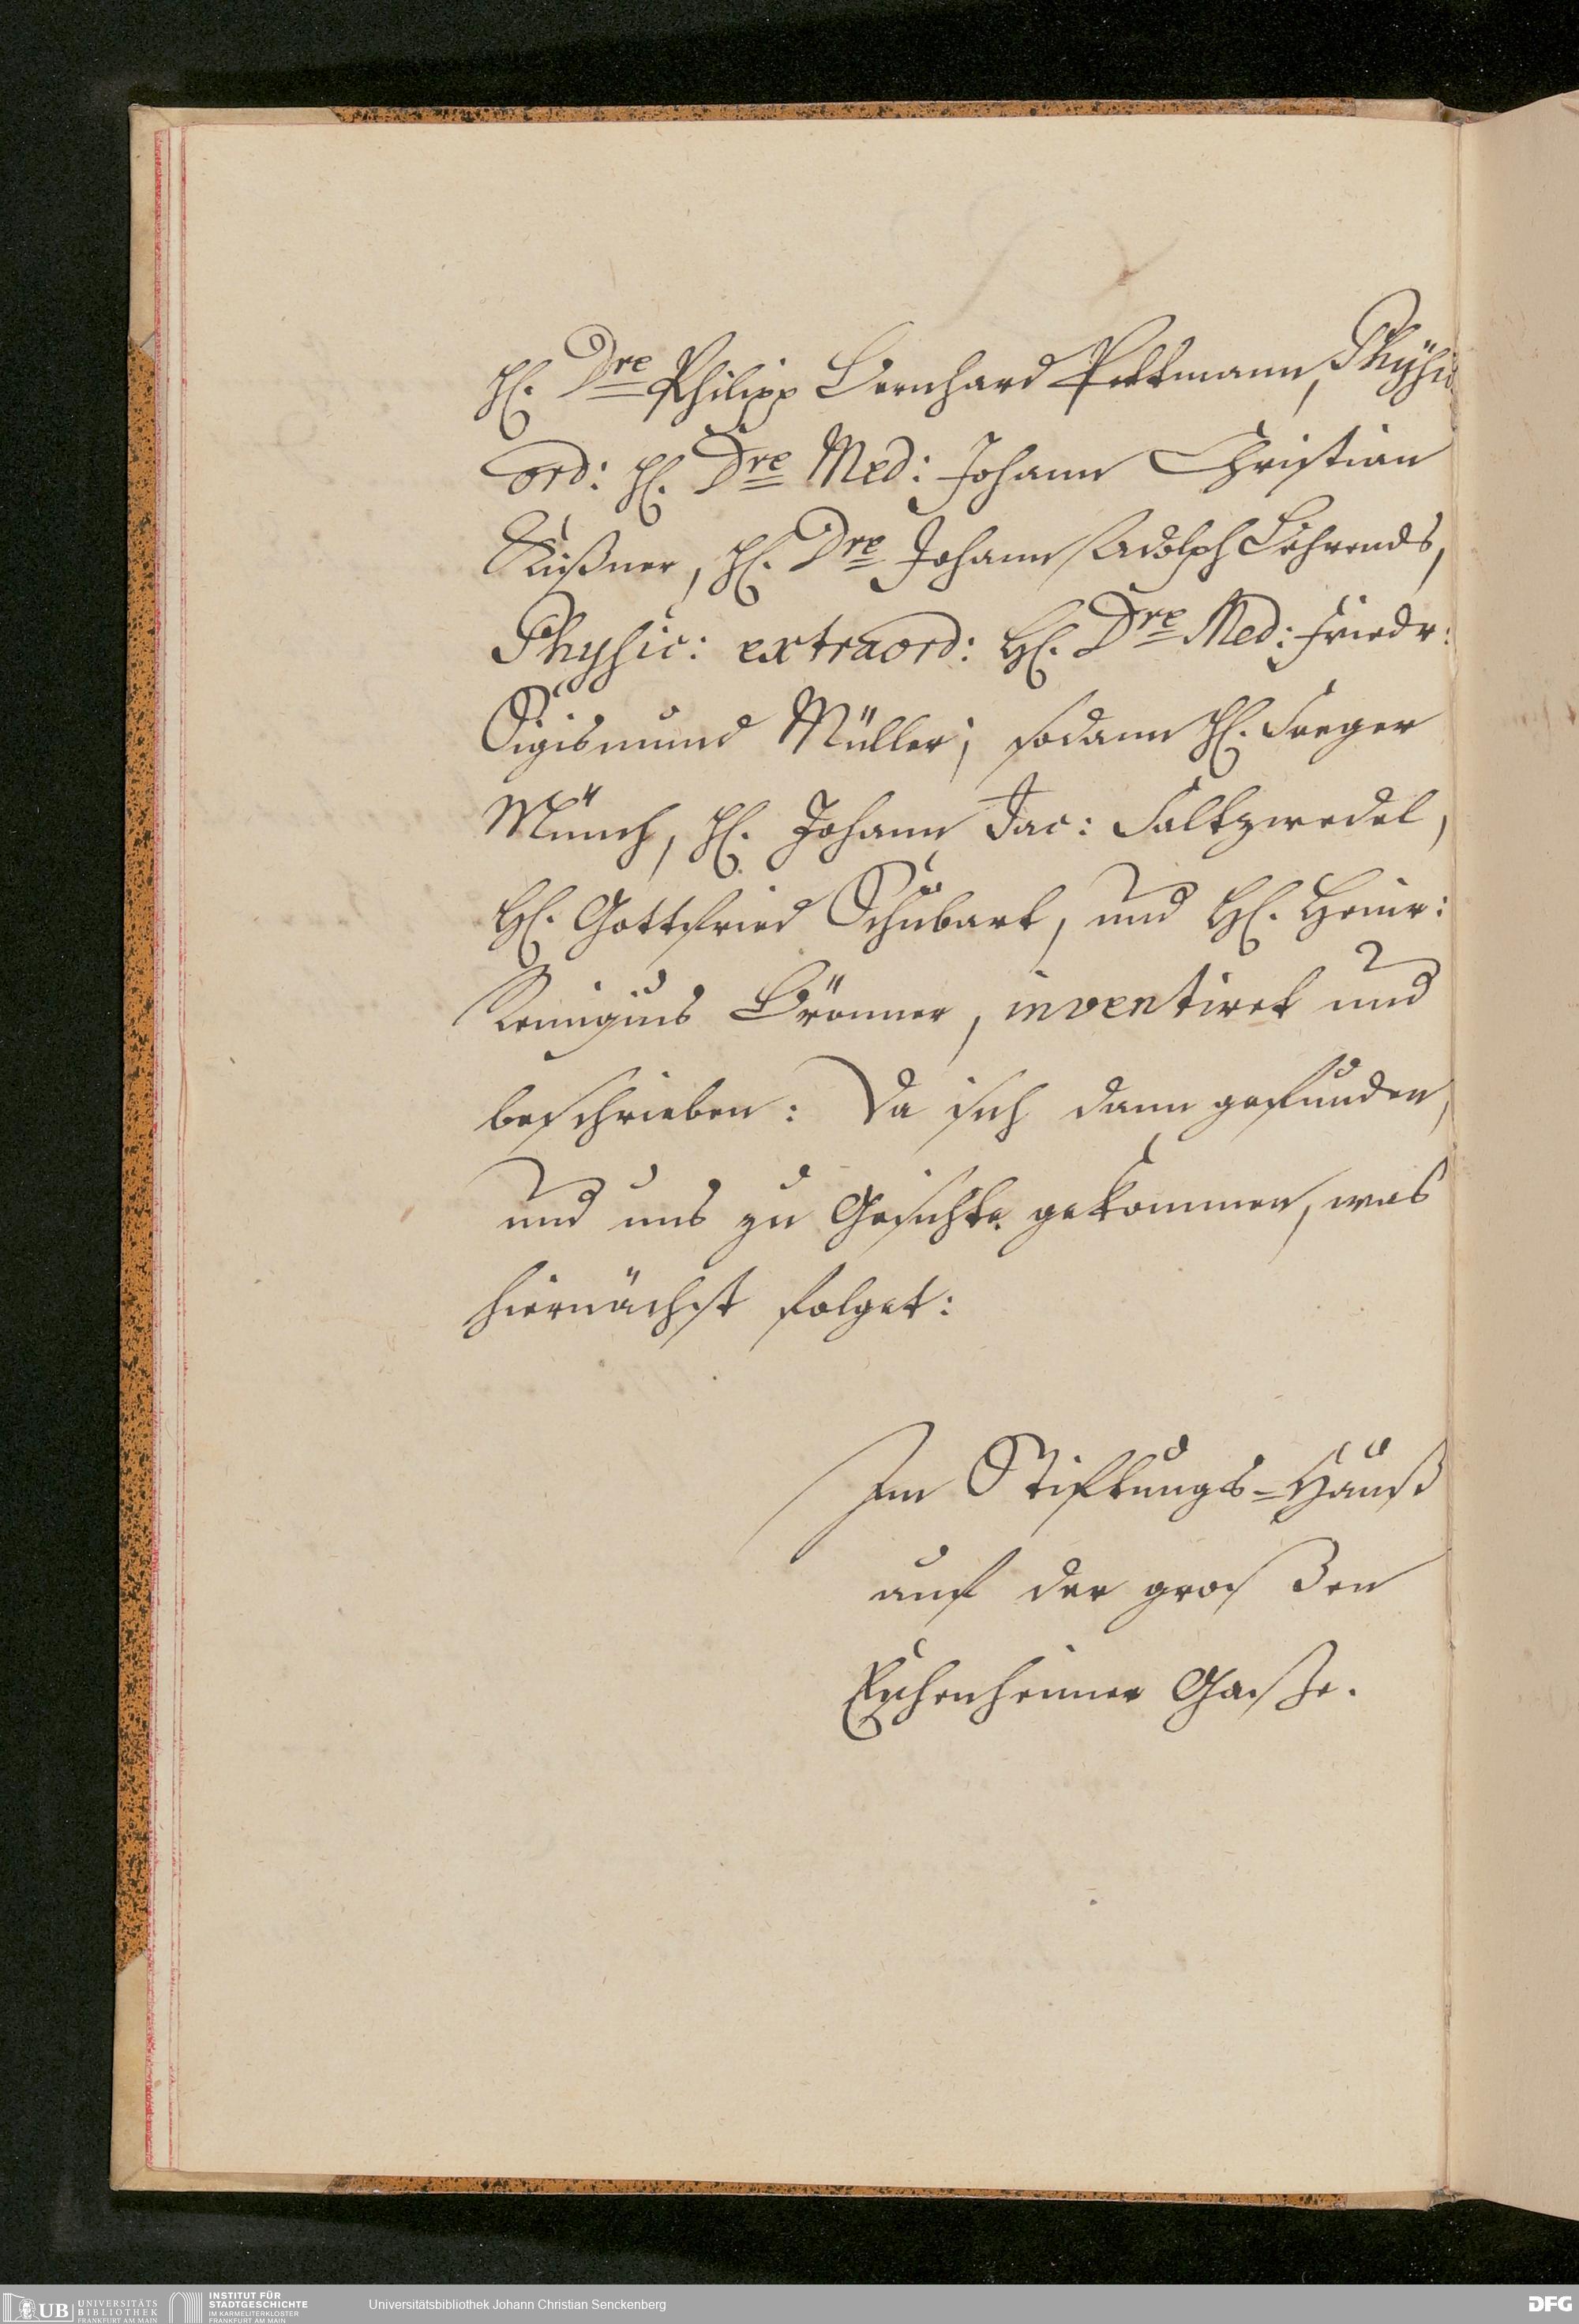 H. Dre Philipp Bernhard Pettmann, Physic
ord: H. Dre Med: Johann Christian
Kißner, H. Dre Johann Adolph Behrends,
Physic: extraord: H. Dre Med: Friedr:
Sigismund Müller; sodann H. Seeger
Münch, H. Johann Jac: Saltzwedel,
H. Gottfried Schubart, und H. Heinr:
Remigius Brönner, inventiret und
beschrieben: Da sich dann gefunden,
und uns zu Gesichte gekommen, was
hiernächst folget:
Im Stiftungs-Hauß
auf der großen
Eschenheimer Gasse.
UB UNIVERSITÄTS
BIBLIOTHEK
FRANKFURT AM MAIN
INSTITUT FÜR
STADTGESCHICHTE
IM KARMELITERKLOSTER
FRANKFURT AM MAIN
Universitätsbibliothek Johann Christian Senckenberg
DFG